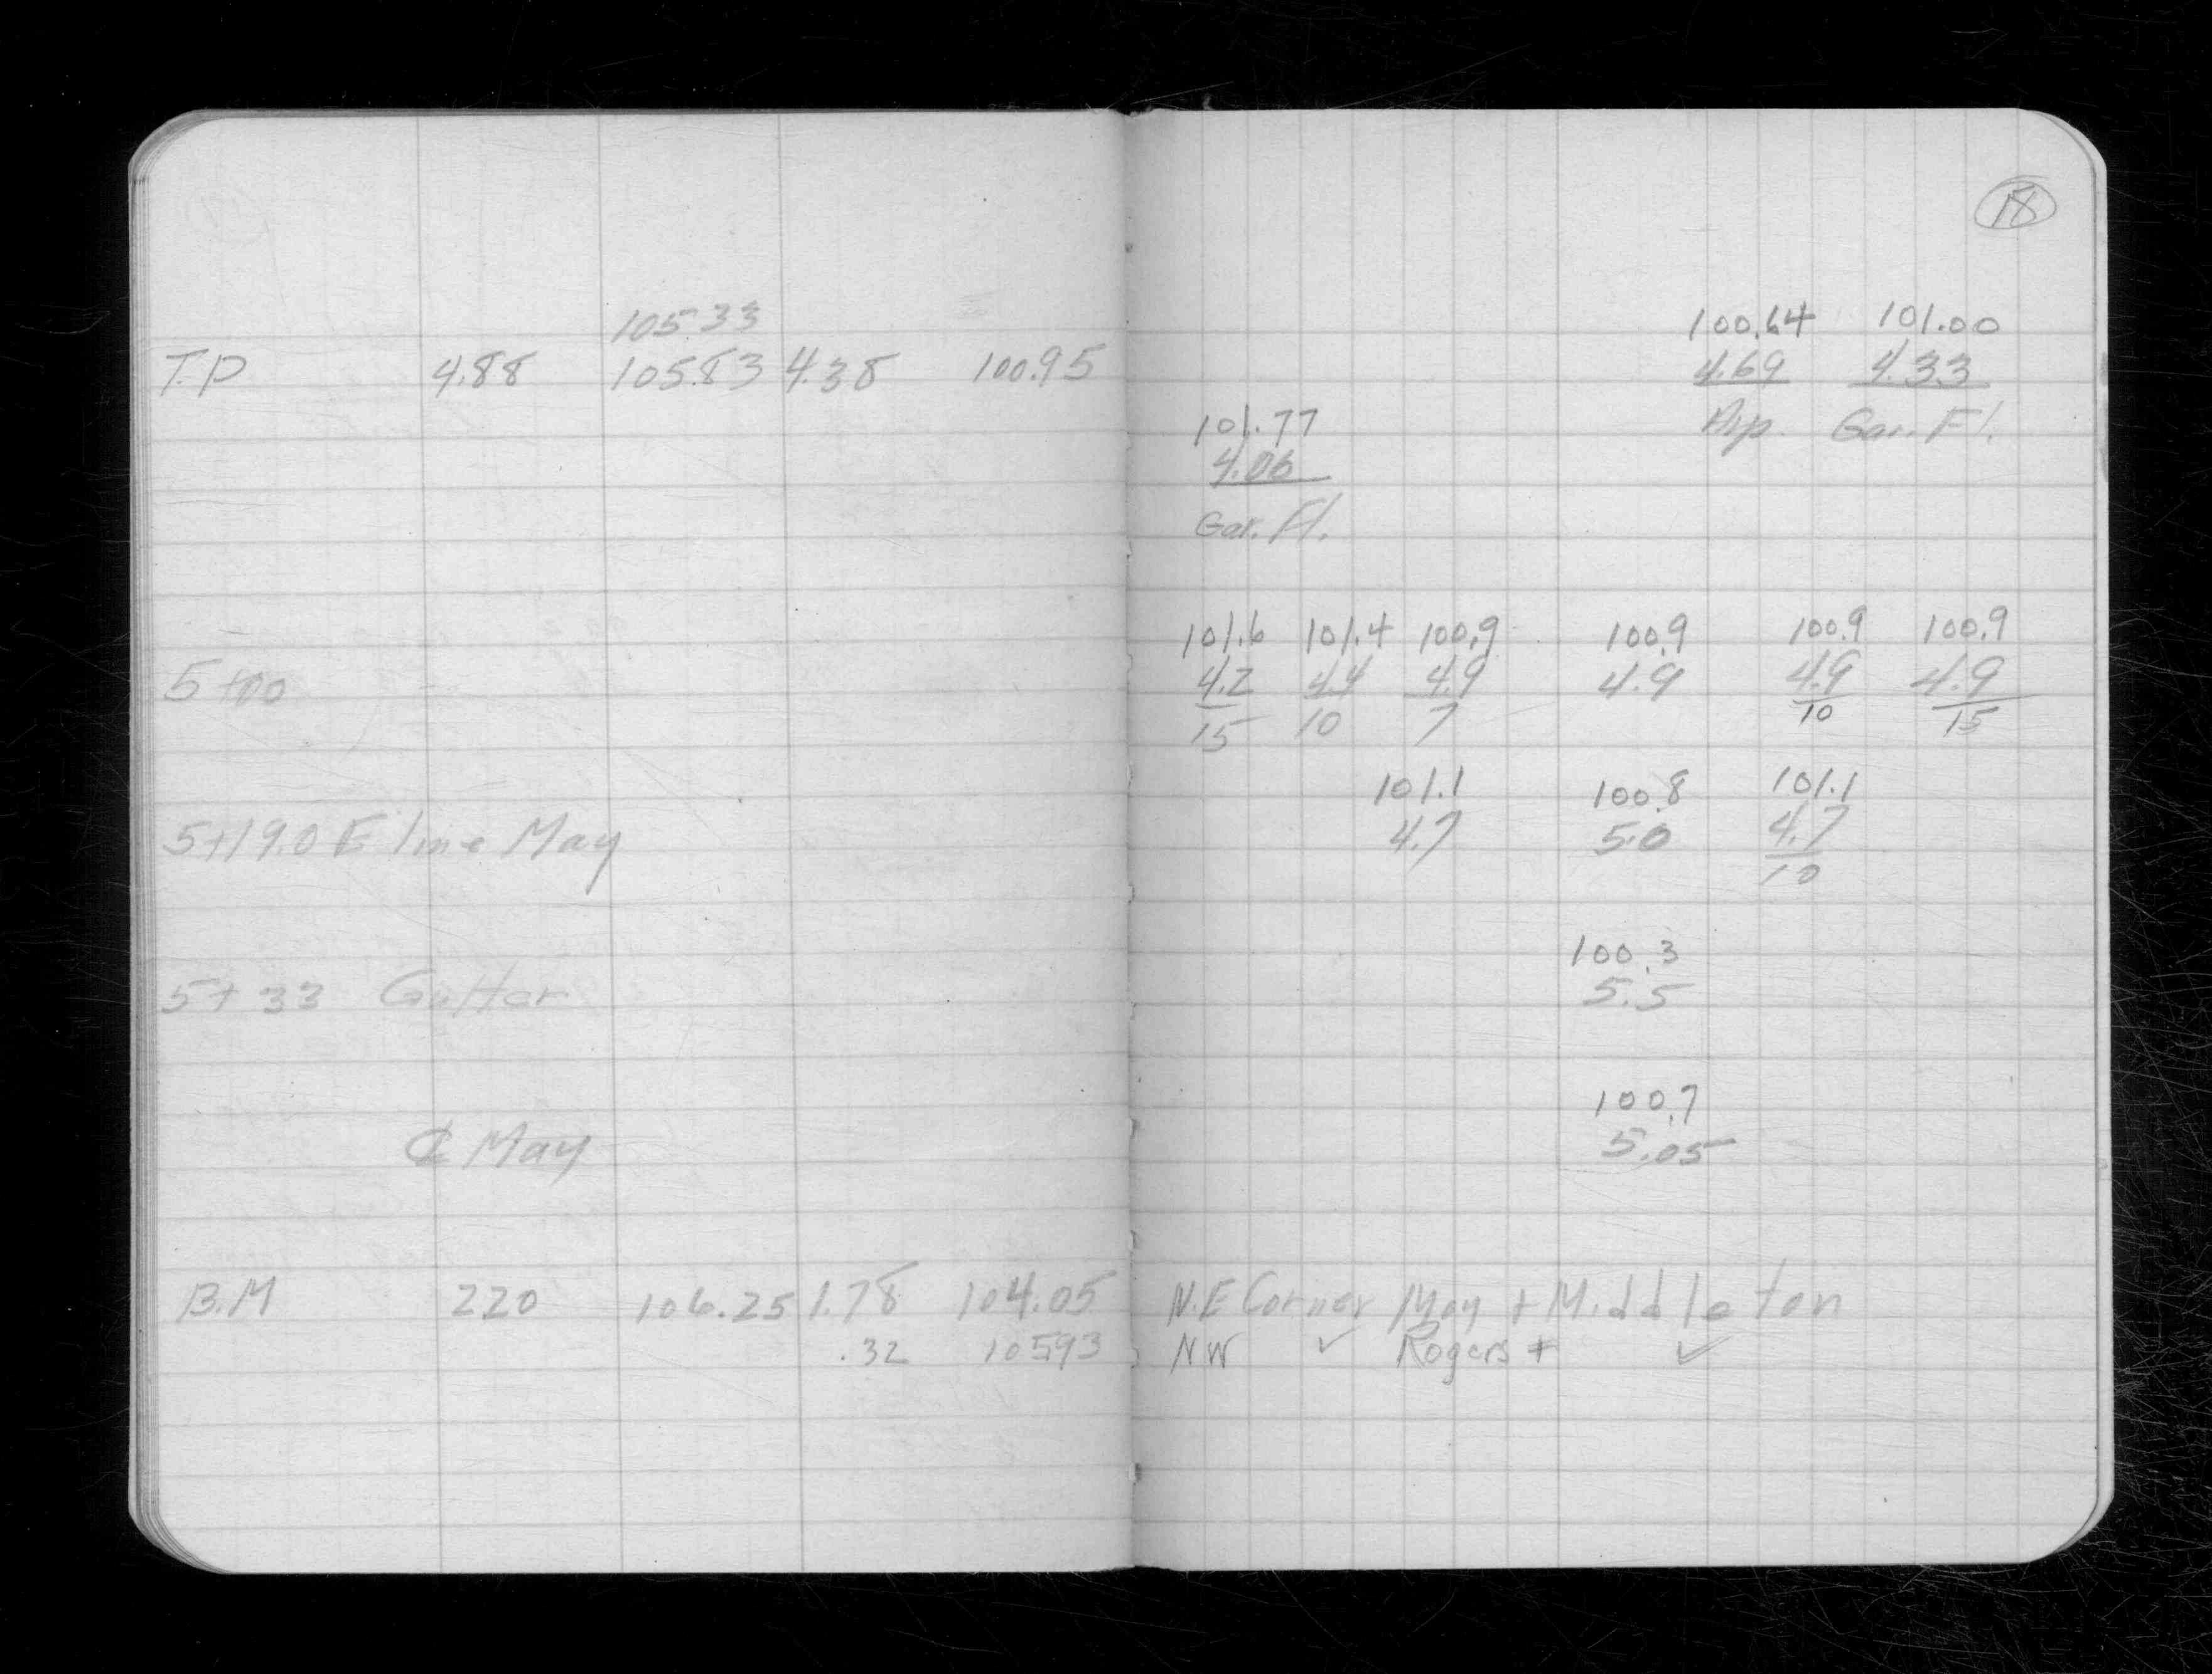 18
105.33
100.64 101.00
T.P 4.88 105.83 4.38 100.95
4.69 4.33
101.77
Gar. Fl.
4.06
Gar. Fl.
101.6 101.4 100.9 100.9 100.9 100.9
5+00
4.2 4.4 4.9 4.9 4.9 4.9
15 10 7 10 15
101.1 100.8 101.1
5+19.0 E line May
4.7 5.0 4.7
10
100.3
5+33 Gutter
5.5
100.7
℄ May
5.05
B.M 220 106.25 1.78 104.05
N.E Corner May + Middleton
.32 10593
NW ✓ Rogers + ✓